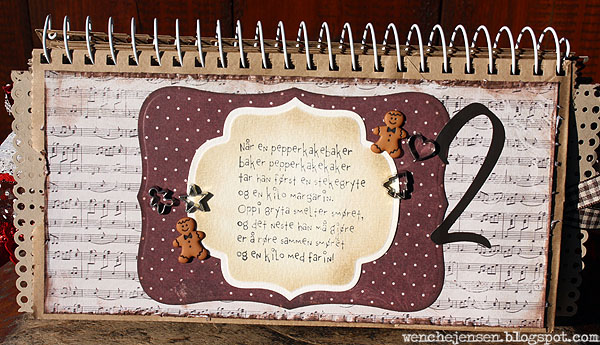 Når en pepperkakebaker
baker pepperkakekaker
tar han først en stekegryte
og en kilo margarin.
Oppi gryta smelter smøret,
og det neste han må gjøre
er å røre sammen smøret
og en kilo med farin!
2
wenchejensen.blogspot.com